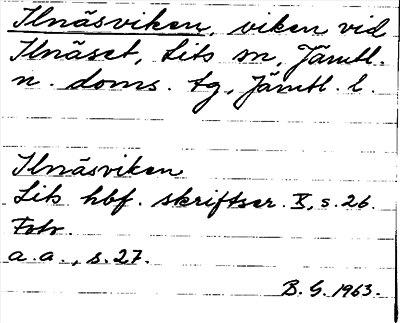 Ilnäsviken, viken vid
Ilnäset, Lits sn, Jämtl.
n. doms. tg, Jämtl. l.
Ilnäsviken
Lits hbf. skriftser. X, s. 26.
Foto.
a. a., s. 27.
B. G. 1963.